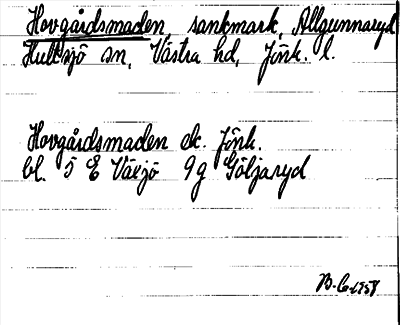 Hovgårdsmaden, sankmark, Allgunnaryd
Hultsjö sn, Västra hd, Jönk. l.
Hovgårdsmaden ek. Jönk.
bl. 5 E Växjö 9g Göljaryd
1958